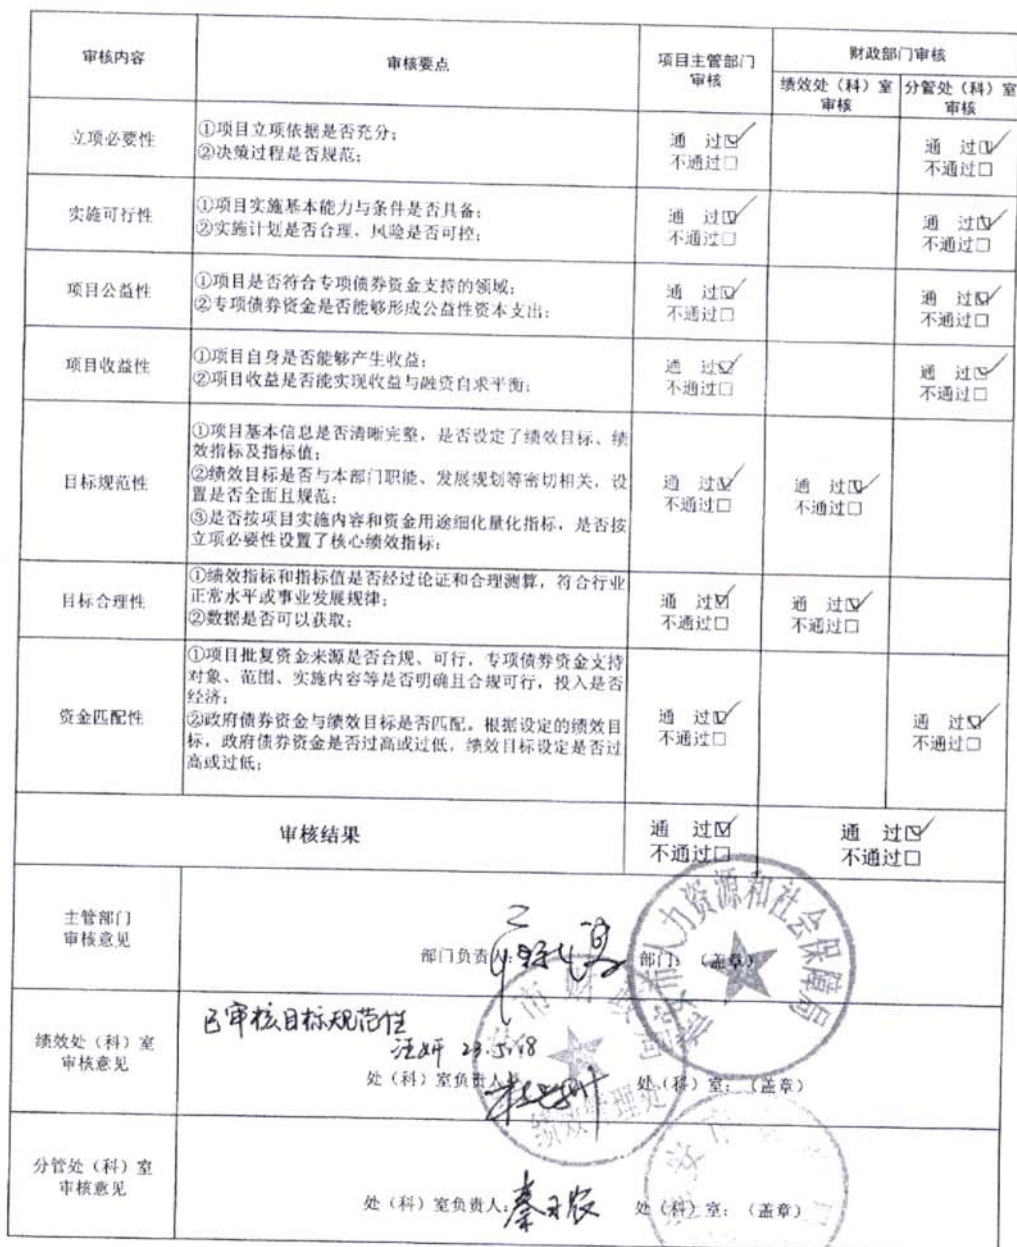 审核内容
审核要点
项目主管部门
审核
财政部门审核
绩效处（科）室
审核
分管处（科）室
审核
立项必要性
①项目立项依据是否充分；
②决策过程是否规范；
通 过☑
不通过□
通 过☑
不通过□
实施可行性
①项目实施基本能力与条件是否具备；
②实施计划是否合理，风险是否可控；
通 过☑
不通过□
通 过☑
不通过□
项目公益性
①项目是否符合专项债券资金支持的领域；
②专项债券资金是否能够形成公益性资本支出；
通 过☑
不通过□
通 过☑
不通过□
项目收益性
①项目自身是否能够产生收益；
②项目收益是否能实现收益与融资自求平衡；
通 过☑
不通过□
通 过☑
不通过□
目标规范性
①项目基本信息是否清晰完整，是否设定了绩效目标、绩
效指标及指标值；
②绩效目标是否与本部门职能、发展规划等密切相关，设
置是否全面且规范；
③是否按项目实施内容和资金用途细化量化指标，是否按
立项必要性设置了核心绩效指标；
通 过☑
不通过□
通 过☑
不通过□
目标合理性
①绩效指标和指标值是否经过论证和合理测算，符合行业
正常水平或事业发展规律；
②数据是否可以获取；
通 过☑
不通过□
通 过☑
不通过□
资金匹配性
①项目批复资金来源是否合规、可行，专项债券资金支持
对象、范围、实施内容等是否明确且合规可行，投入是否
经济；
②政府债券资金与绩效目标是否匹配。根据设定的绩效目
标，政府债券资金是否过高或过低，绩效目标设定是否过
高或过低；
通 过☑
不通过□
通 过☑
不通过□
审核结果
通 过☑
不通过□
通 过☑
不通过□
主管部门
审核意见
部门负责人：
部门：（盖章）
市人力资源和社会保障局
绩效处（科）室
审核意见
已审核目标规范性
汪妍 23.5.18
处（科）室负责人：
处（科）室：（盖章）
绩效管理处
分管处（科）室
审核意见
处（科）室负责人：
处（科）室：（盖章）